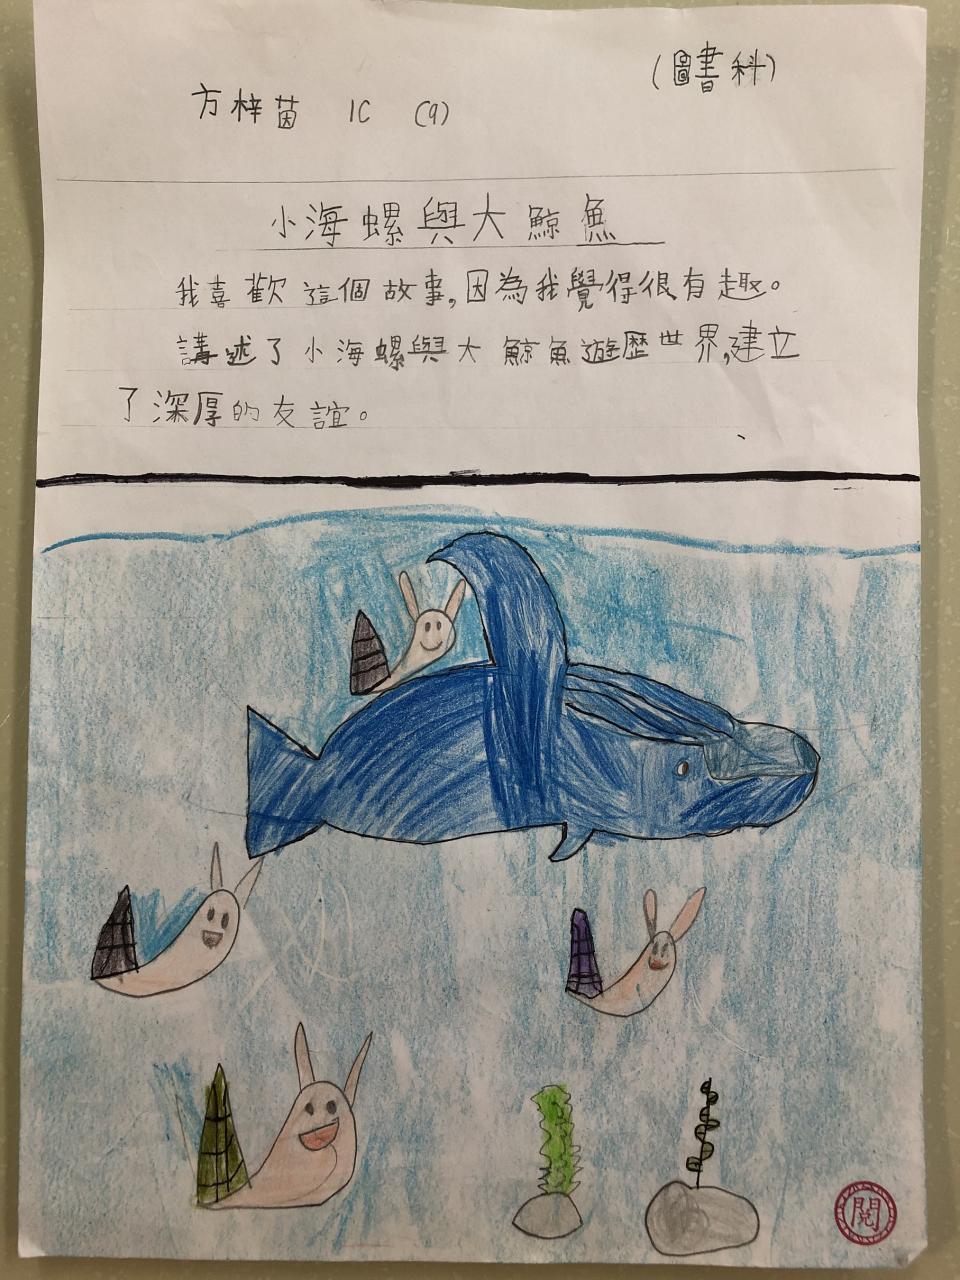 (圖書科)
方梓茵 1C (9)
小海螺與大鯨魚
我喜歡這個故事,因為我覺得很有趣。
講述了小海螺與大鯨魚遊歷世界,建立
了深厚的友誼。
閱